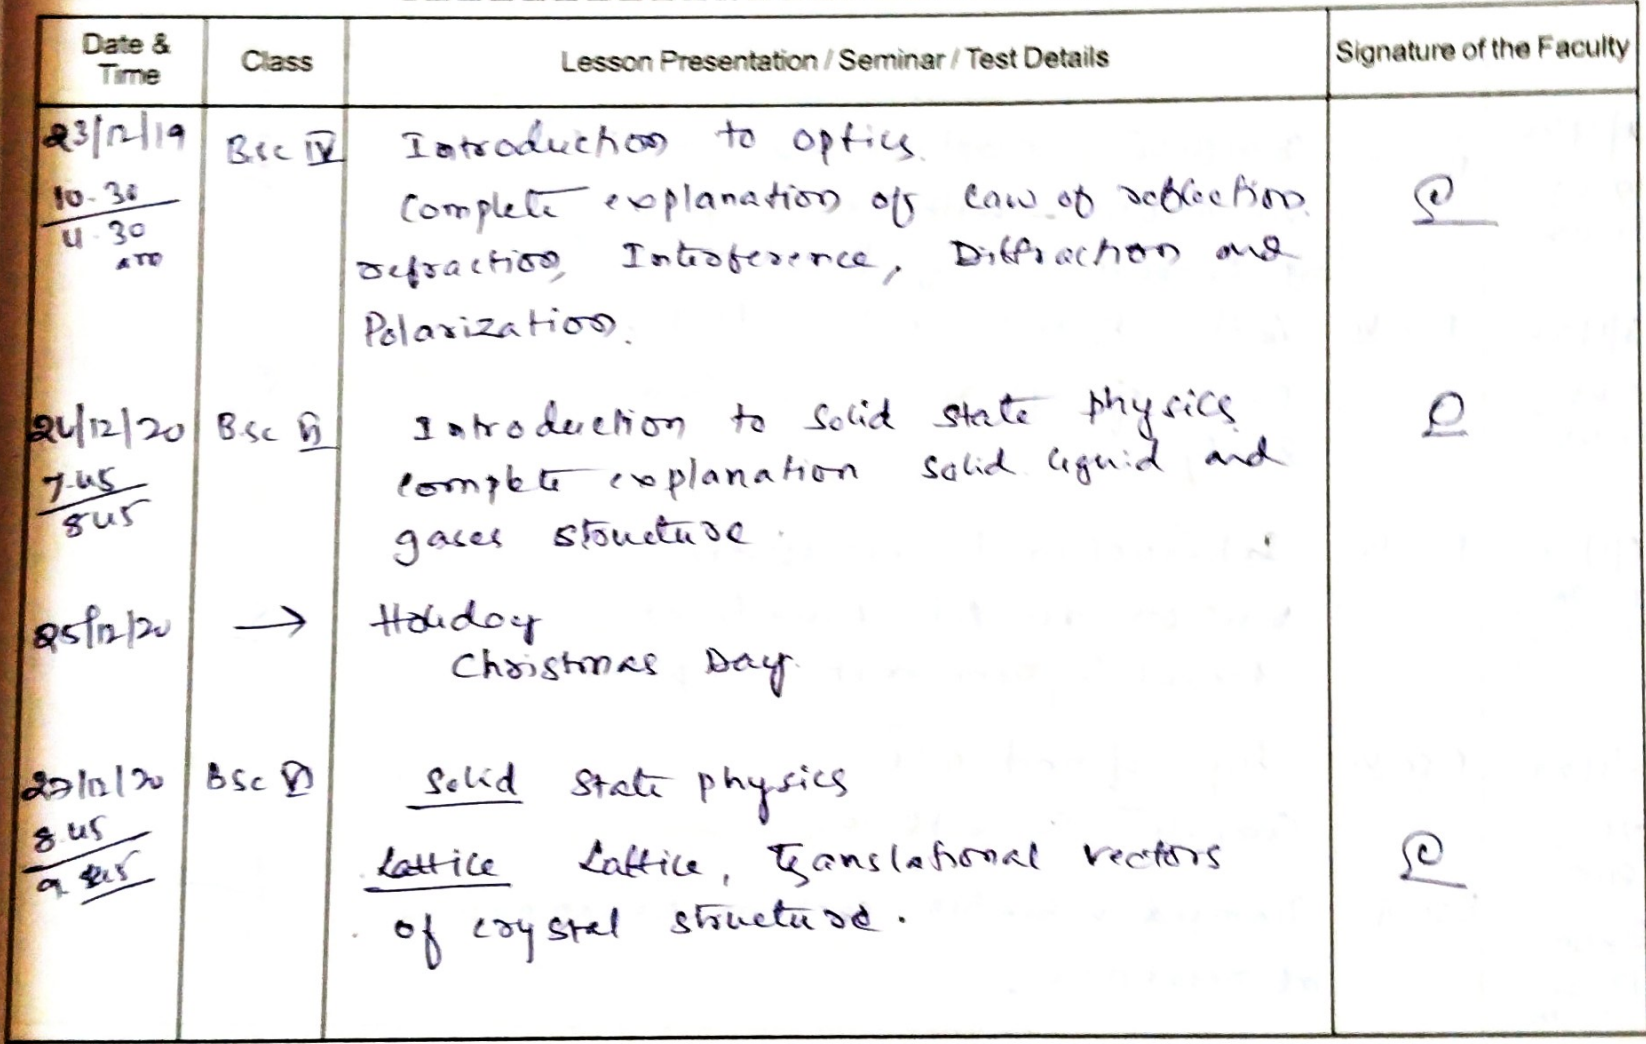 Date & Time
Class
Lesson Presentation / Seminar / Test Details
Signature of the Faculty
23/12/19 Bsc IV Introduction to optics.
10-30 Complete explanation of law of reflection
11.30 refraction, Interference, Diffraction and
Polarization.
24/12/20 B.sc Introduction to Solid state physics
7.45 complete explanation solid liquid and
8 45 gases structure.
25/12/20 → Holiday
Christmas Day.
27/12/20 BSc Solid state physics
8.45 Lattice Lattice, Translational vectors
9 45 of crystal structure.